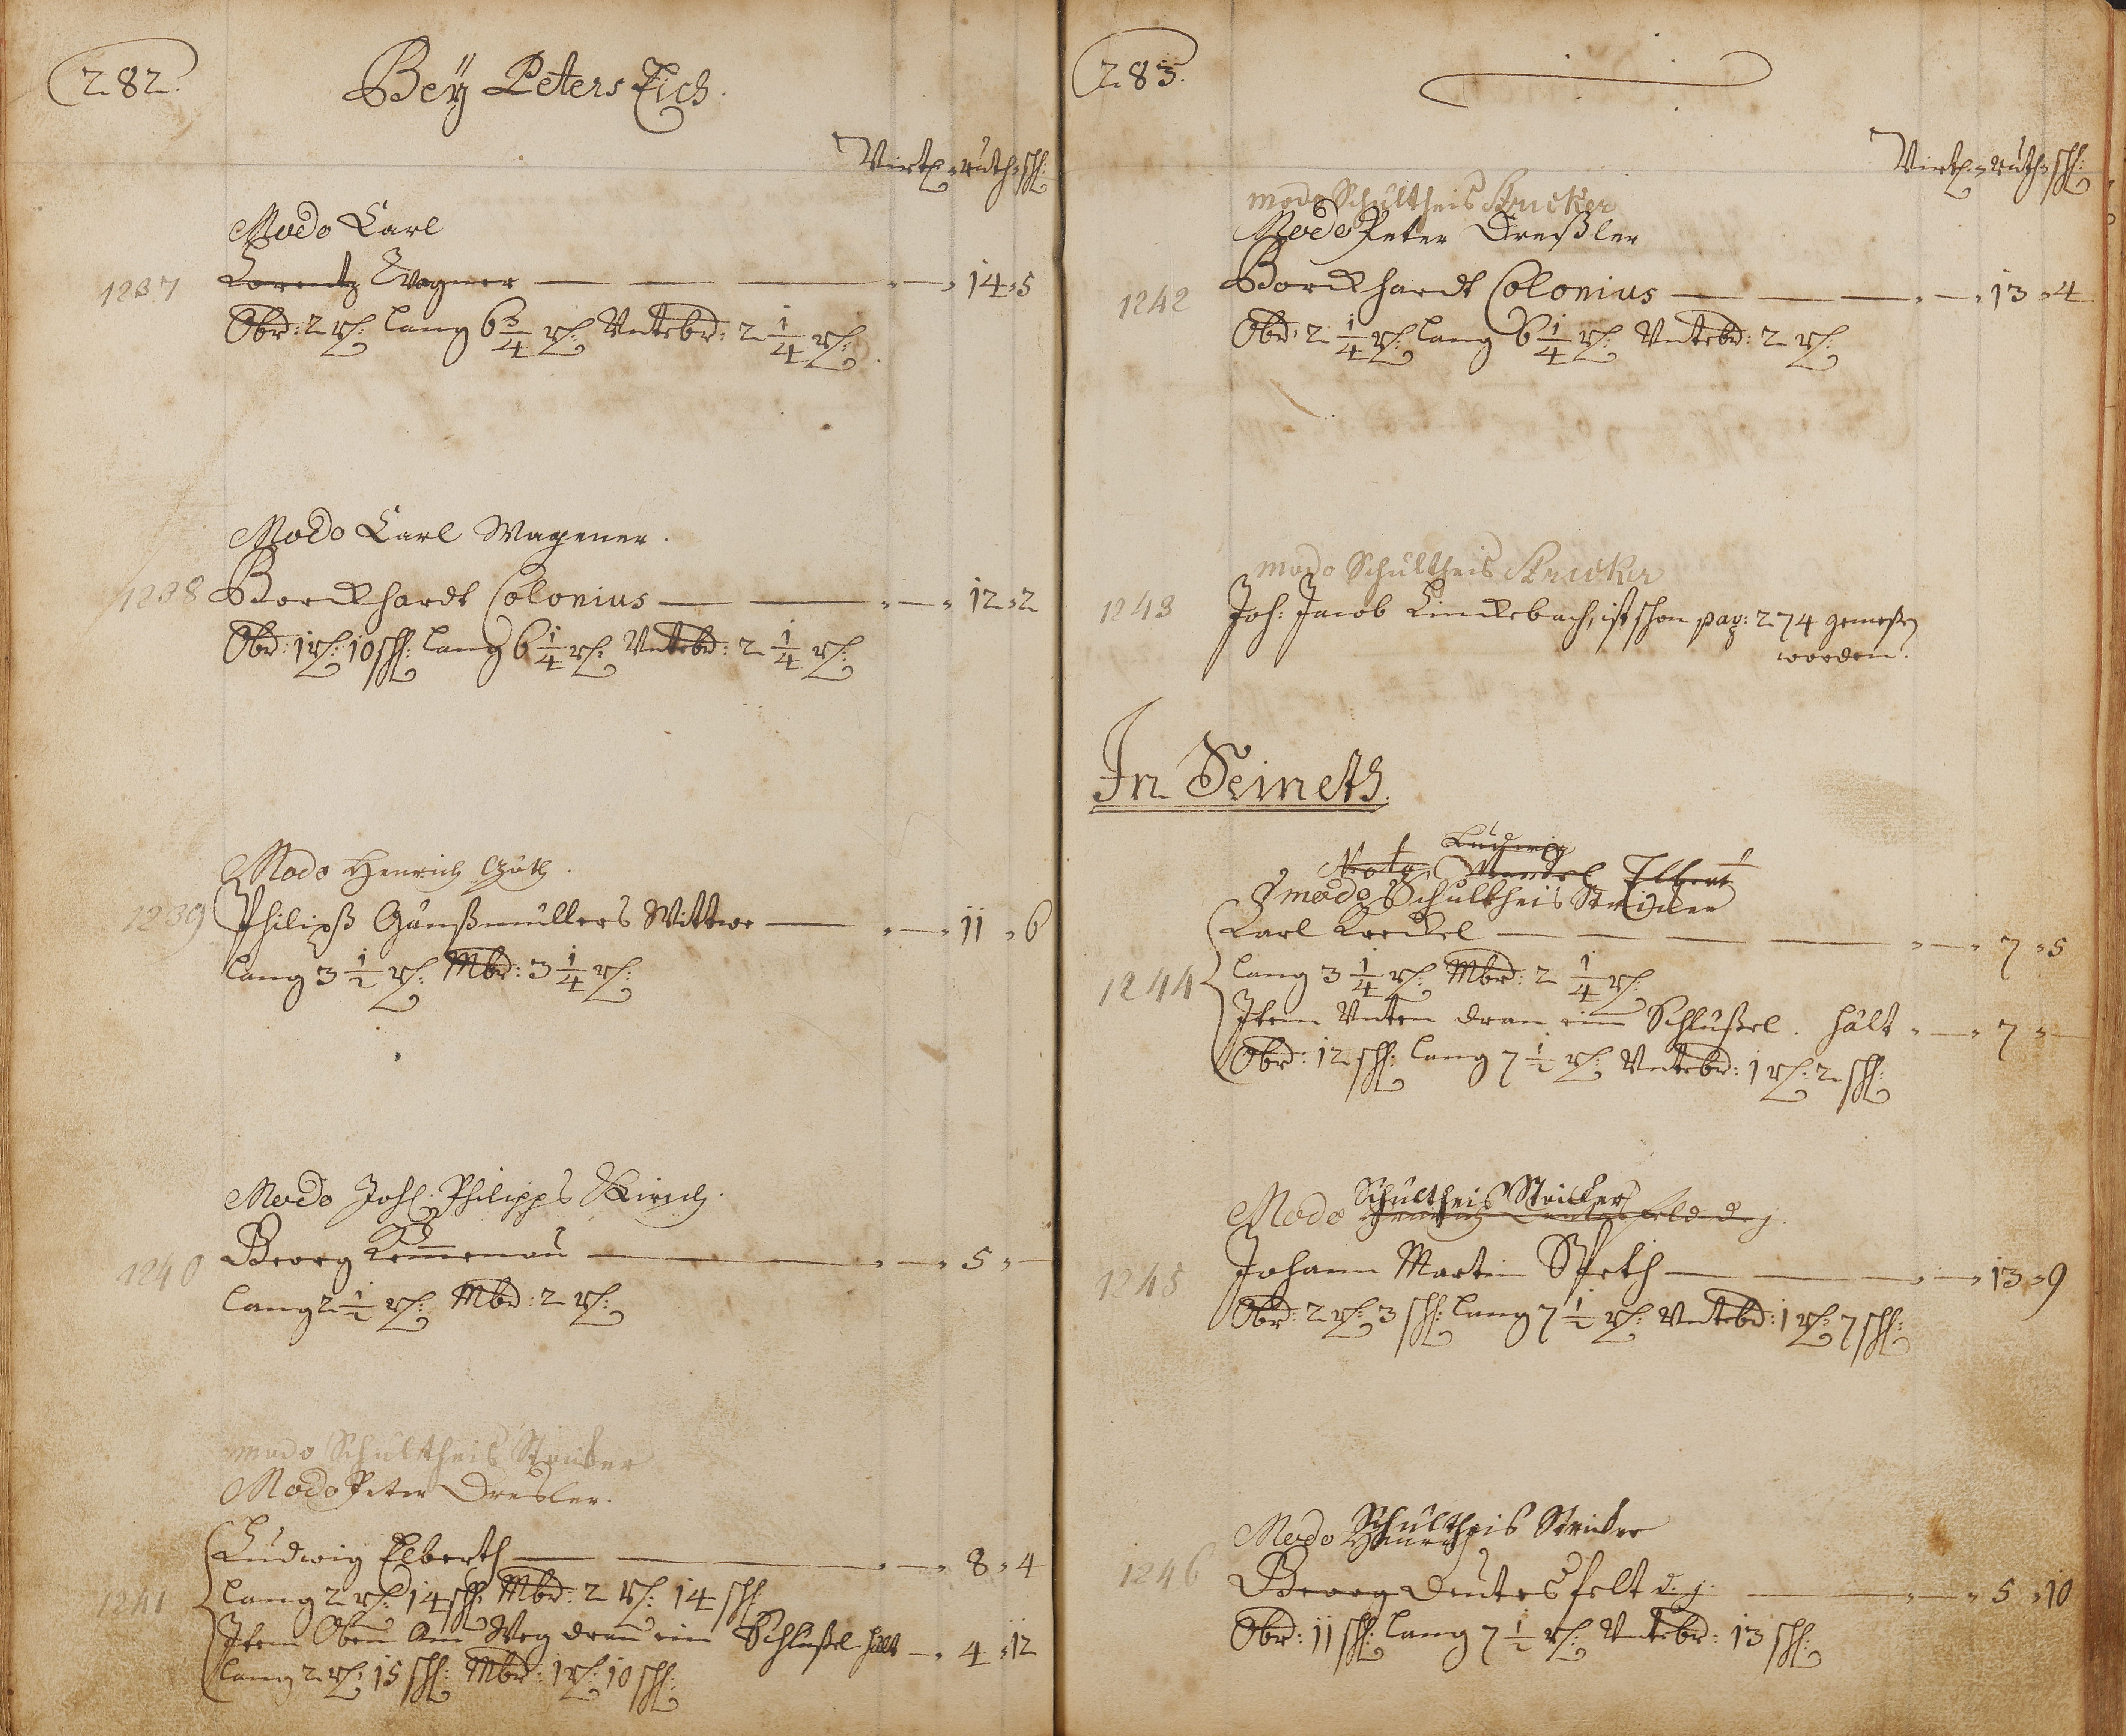 282.
Beÿ Peters Eich.
Virtl. ruth. sch:
Modo Carl
1237 Lorentz Wagner — — — " — " 14 " 5
Obrd: 2 r: lang 6 3/4 r: Untebrd: 2 1/4 r:
Modo Carl Wagener.
1238 Borckhardt Colonius — — " — " 12 " 2
Obrd: 1 r: 10 sch: lang 6 1/4 r: Untebrd: 2 1/4 r:
Modo Henrich Güth.
1239 Philipß Gänßmüllers Wittwe — " — " 11 " 6
lang 3 1/2 r: Mbrd: 3 1/4 r:
Modo Joh: Philipps Kirsch.
1240 Georg Kem̅enau — — " — " 5 " —
lang 2 1/2 r: Mbrd: 2 r:
modo Schultheis Stricker
Modo Peter Dresler.
1241 Ludwig Elberth — — " — " 8 " 4
lang 2 r: 14 sch: Mbrd: 2 r: 14 sch:
Item Oben am Weg dran ein Schlüßel hält — " 4 " 12
lang 2 r: 15 sch: Mbrd: 1 r: 10 sch:
283.
Virtl. ruth. sch:
modo Schultheis Stricker
Modo Peter Dreißler
1242 Borckhardt Colonius — — — " — " 13 " 4
Obrd: 2 1/4 r: lang 6 1/4 r: Untebrd: 2 r:
modo Schultheis Stricker
1243 Joh: Jacob Linckebach, ist schon pag: 274 gemeßen
worden.
In Seineth.
Ludwig
Wendel Elbert
modo Schultheis Stricker
1244 Carl Keckel — — — " — " 7 " 5
lang 3 1/4 r: Mbrd: 2 1/4 r:
Item Unten dran ein Schlüßel. hält " — " 7 " —
Obrd: 12 sch: lang 7 1/2 r: Untebrd: 1 r: 2 sch:
Schultheis Stricker
Modo d. j.
1245 Johann Martin Speth — — " — " 13 " 9
Obrd: 2 r: 3 sch: lang 7 1/2 r: Untebrd: 1 r: 7 sch:
Schultheis Stricker
Modo Henrich
1246 Georg Deutesfelt d. j. — " — " 5 " 10
Obrd: 11 sch: lang 7 1/2 r: Untebrd: 13 sch: